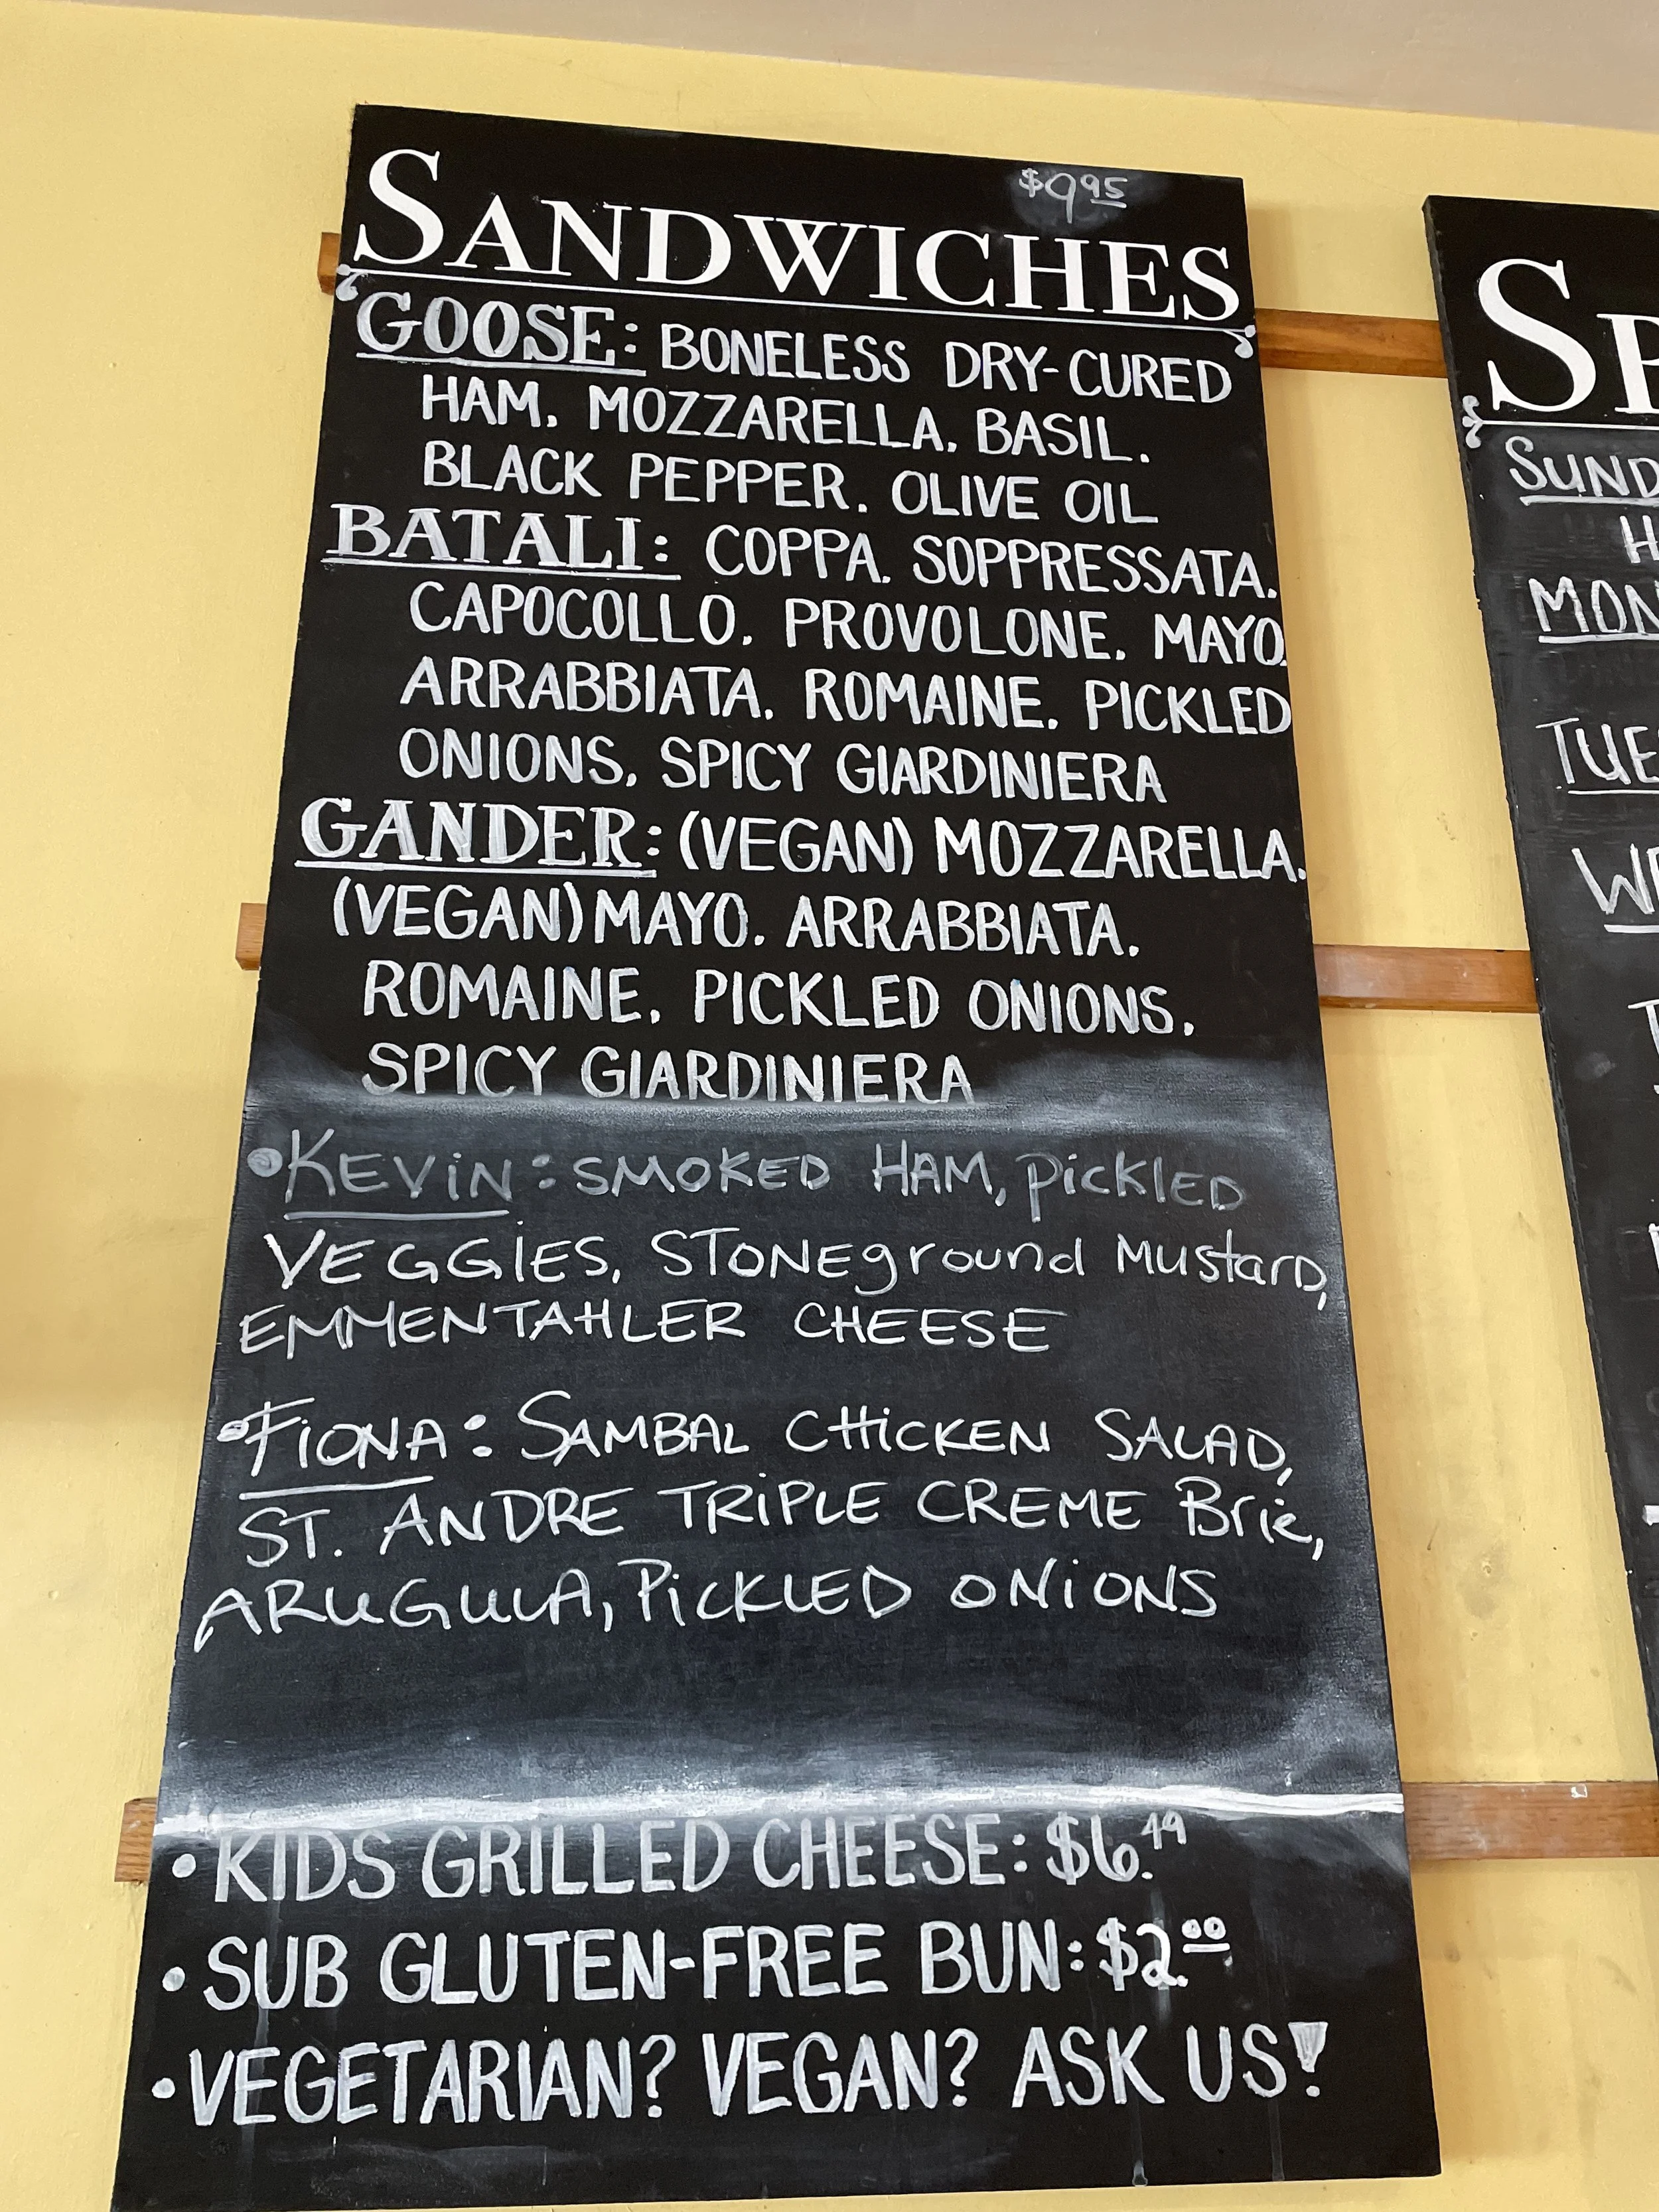 $9.95
SANDWICHES
GOOSE: BONELESS DRY-CURED
HAM, MOZZARELLA, BASIL,
BLACK PEPPER, OLIVE OIL
BATALI: COPPA, SOPPRESSATA,
CAPOCOLLO, PROVOLONE, MAYO,
ARRABBIATA, ROMAINE, PICKLED
ONIONS, SPICY GIARDINIERA
GANDER: (VEGAN) MOZZARELLA,
(VEGAN) MAYO, ARRABBIATA,
ROMAINE, PICKLED ONIONS,
SPICY GIARDINIERA
•KEViN: SMOKED HAM, PiCKlED
VEGGiES, STONEground Mustard,
EMMENTAHLER CHEESE
•FiONA: SAMBAL CHiCKEN SALAD,
ST. ANDRE TRiPLE CREME Brie,
ARUGULA, PiCKLED ONiONS
• KIDS GRILLED CHEESE: $6.49
• SUB GLUTEN-FREE BUN: $2.00
• VEGETARIAN? VEGAN? ASK US!
SP
SUND
H
MON
TUE
WE